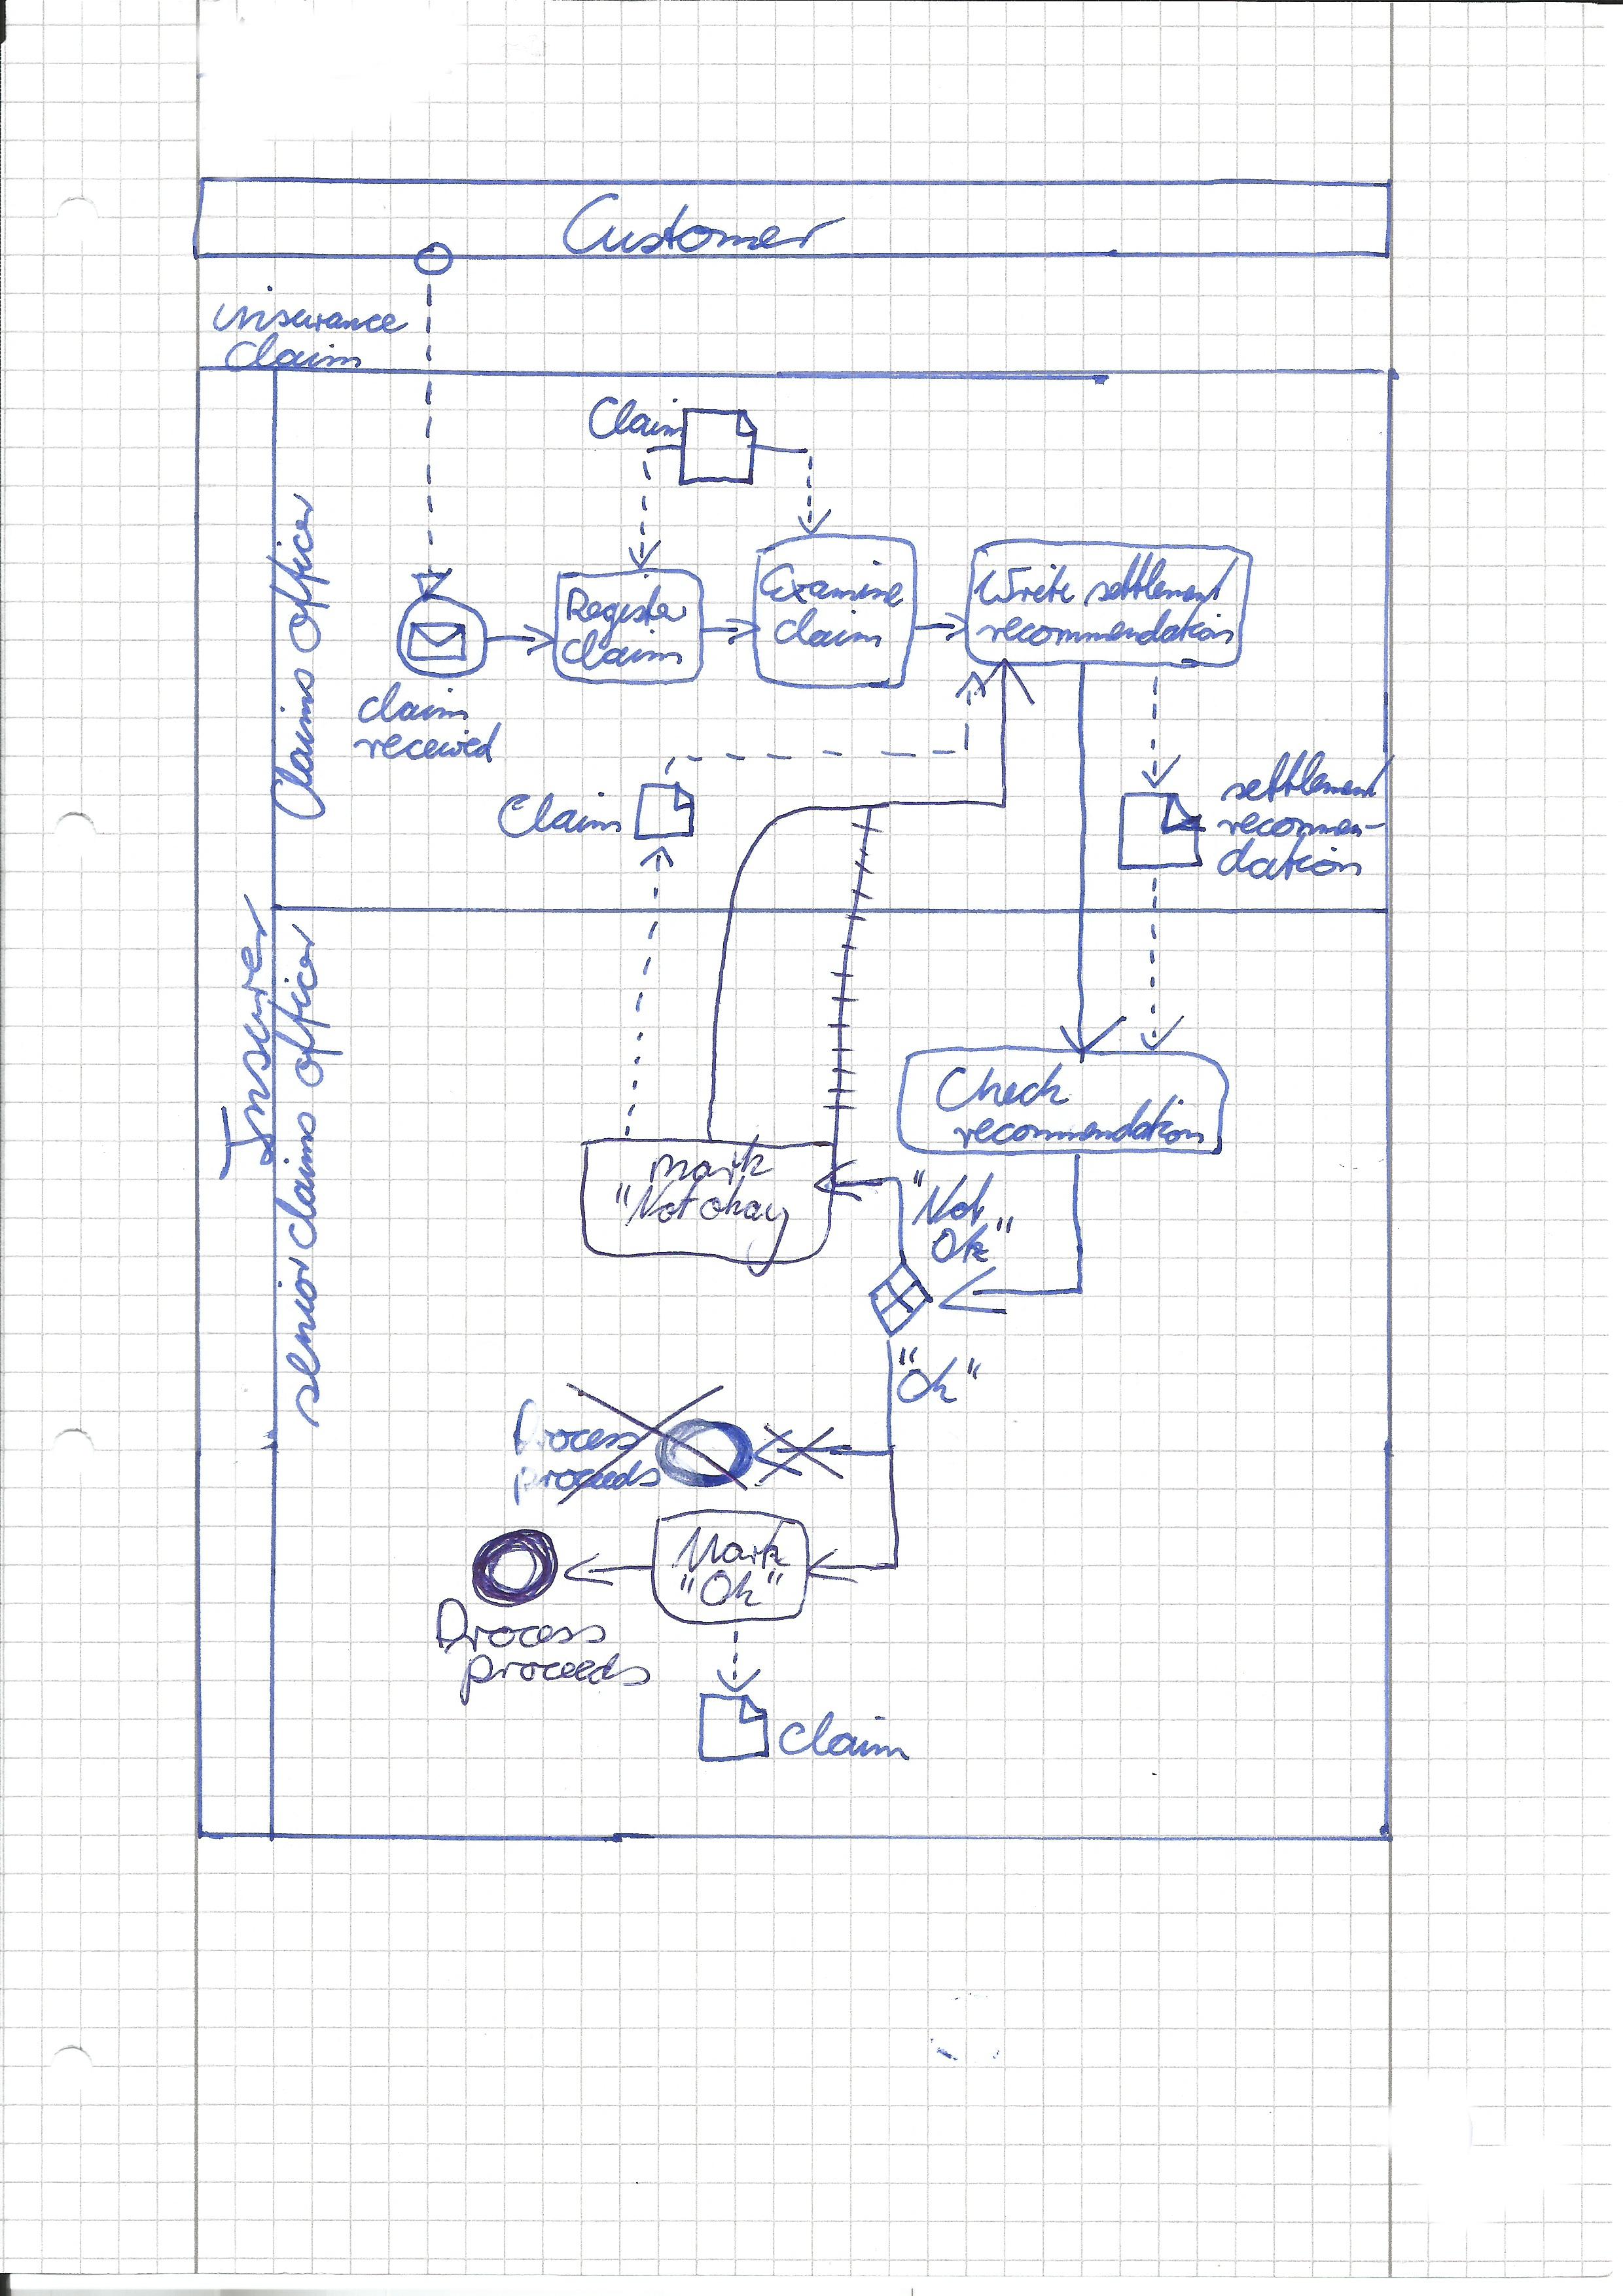 Customer
insurance
claim
Claim
Claims officer
Register
claim
Examine
claim
Write settlement
recommendation
claim
received
Claim
settlement
recommen-
dation
Insurer
senior claims officer
Check
recommendation
mark
"Not okay
"Not
Ok"
"Ok"
Process
proceeds
Mark
"Ok"
Process
proceeds
Claim